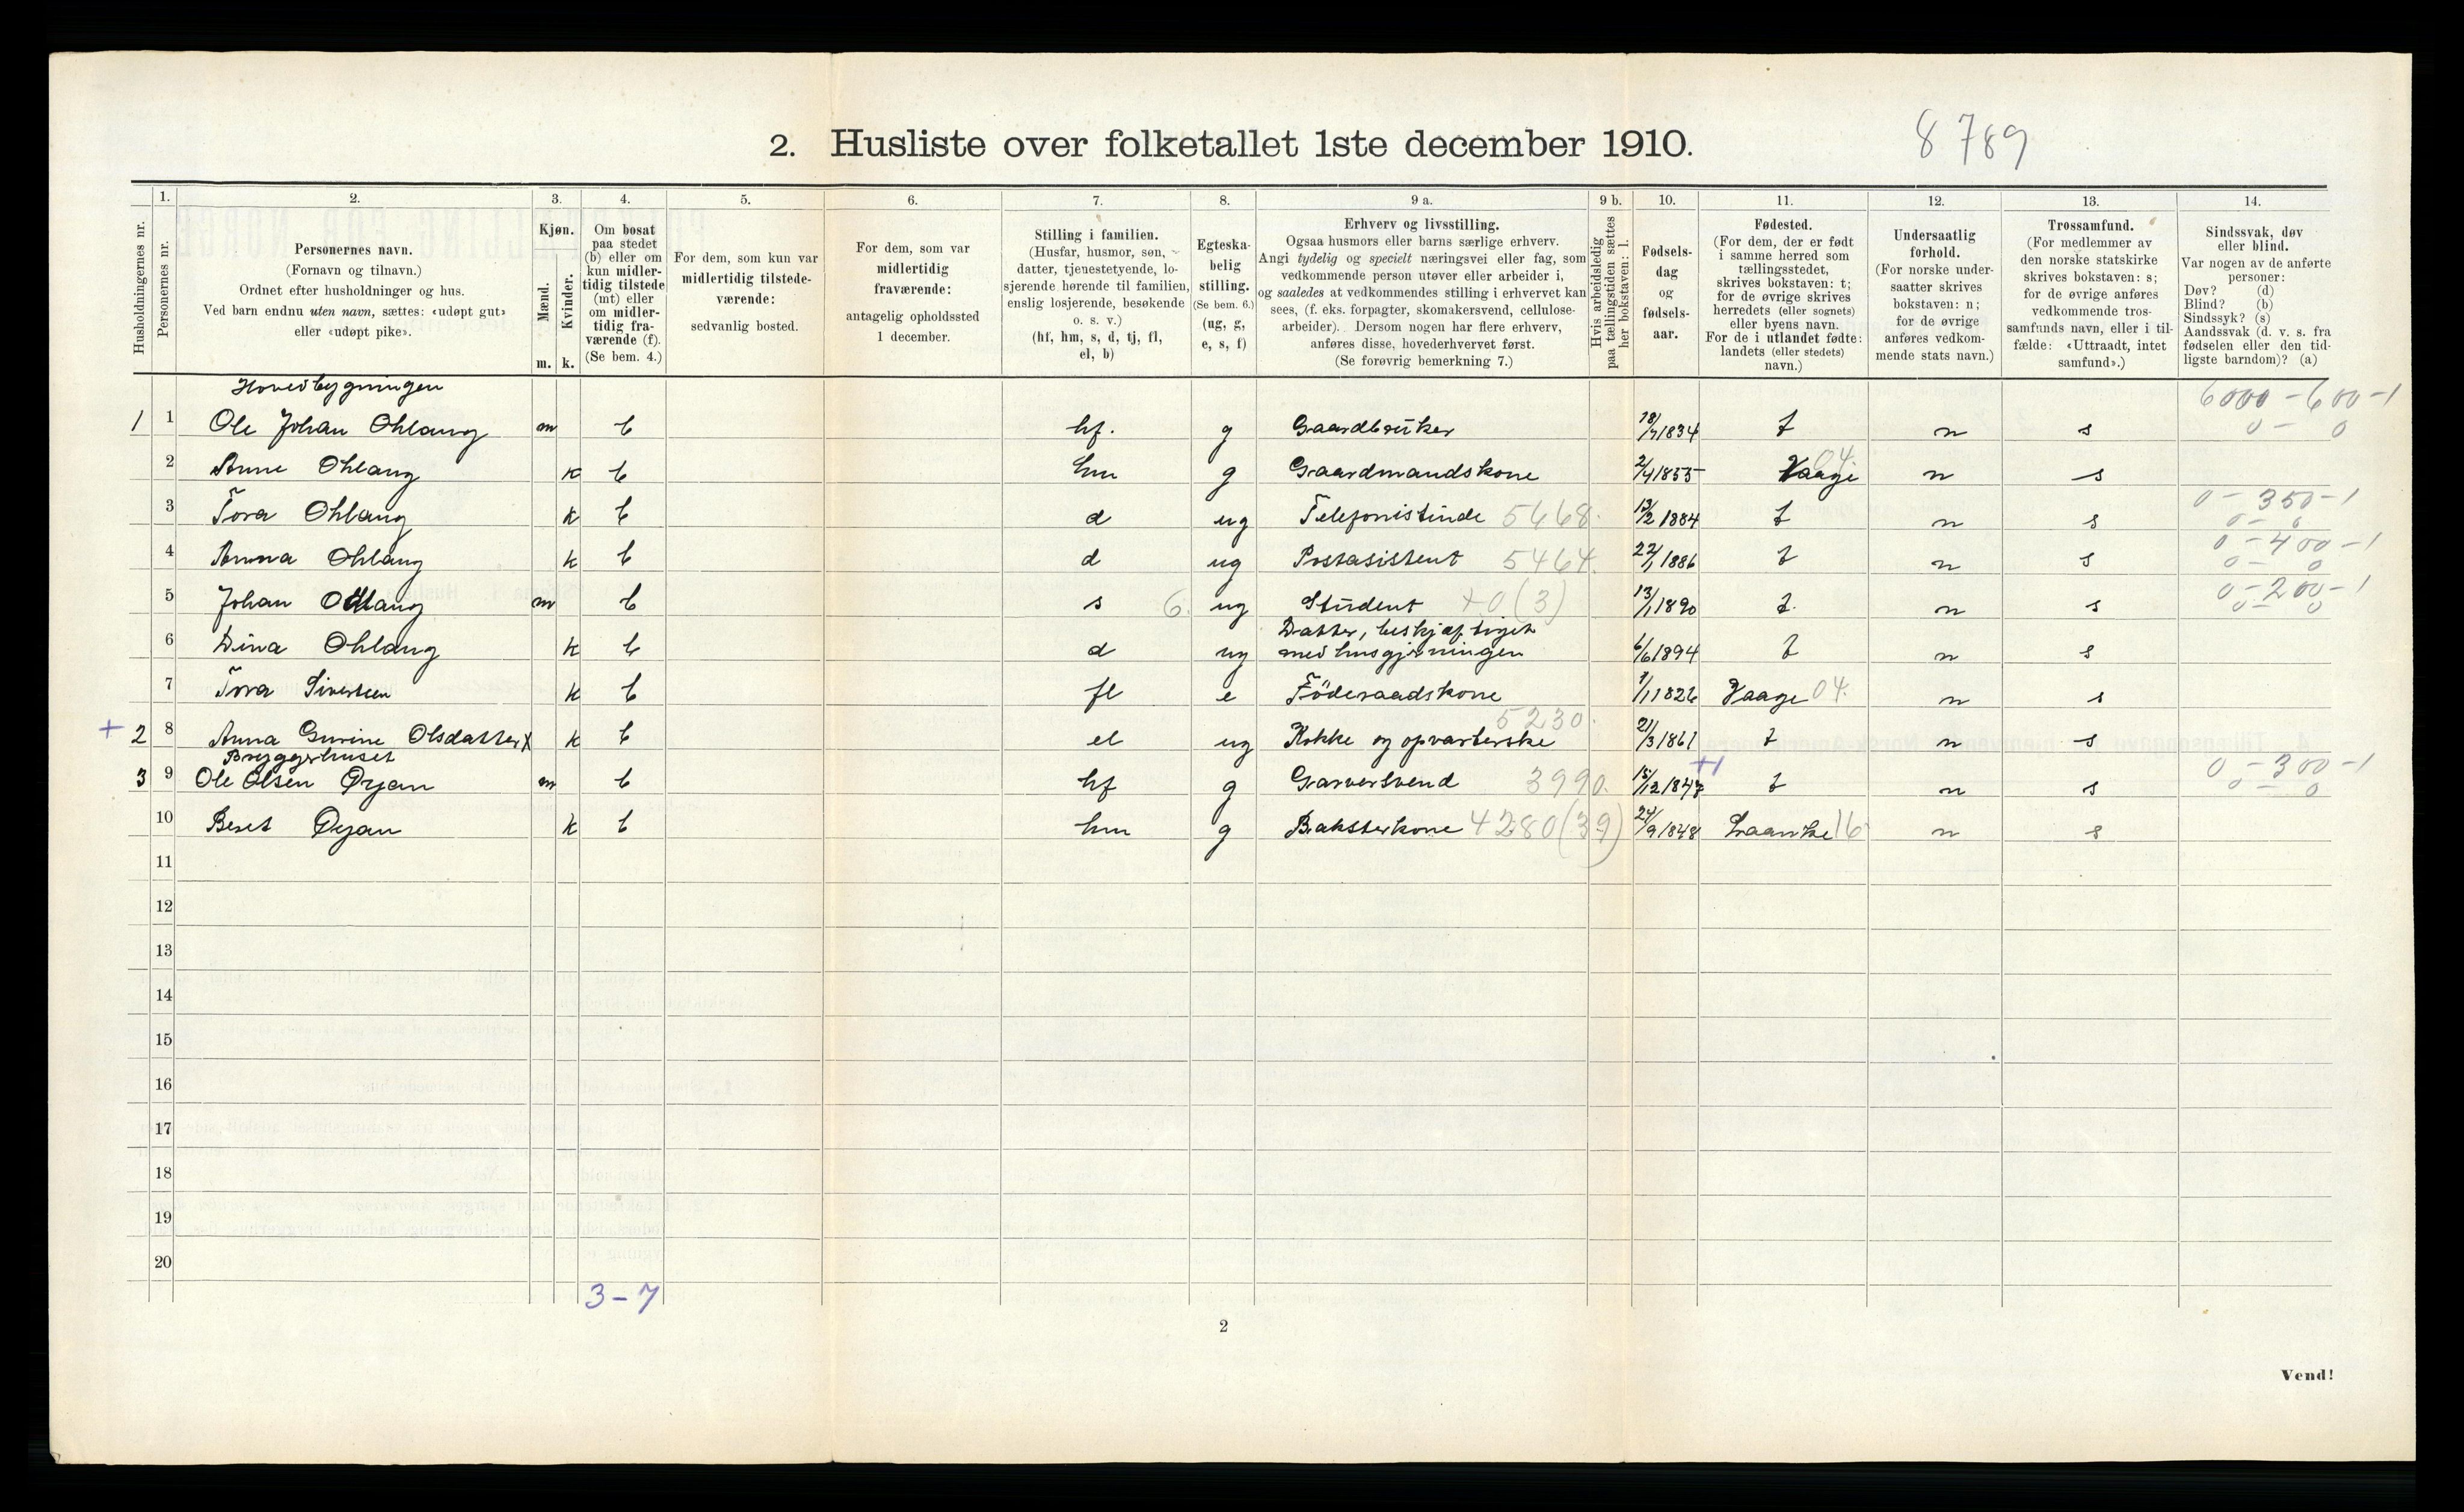 2. Husliste over folketallet 1ste december 1910.
8789
Husholdningernes nr.
1. Personernes nr.
2. Personernes navn.
(Fornavn og tilnavn.)
Ordnet efter husholdninger og hus.
Ved barn endnu uten navn, sættes: «udøpt gut»
eller «udøpt pike».
3. Kjøn.
Mænd. m.
Kvinder. k.
4. Om bosat
paa stedet
(b) eller om
kun midler-
tidig tilstede
(mt) eller
om midler-
tidig fra-
værende (f).
(Se bem. 4.)
5. For dem, som kun var
midlertidig tilstede-
værende:
sedvanlig bosted.
6. For dem, som var
midlertidig
fraværende:
antagelig opholdssted
1 december.
7. Stilling i familien.
(Husfar, husmor, søn,
datter, tjenestetyende, lo-
sjerende hørende til familien,
enslig losjerende, besøkende
o. s. v.)
(hf, hm, s, d, tj, fl,
el, b)
8. Egteska-
belig
stilling.
(Se bem. 6.)
(ug, g,
e, s, f)
9 a. Erhverv og livsstilling.
Ogsaa husmors eller barns særlige erhverv.
Angi tydelig og specielt næringsvei eller fag, som
vedkommende person utøver eller arbeider i,
og saaledes at vedkommendes stilling i erhvervet kan
sees, (f. eks. forpagter, skomakersvend, cellulose-
arbeider). Dersom nogen har flere erhverv,
anføres disse, hovederhvervet først.
(Se forøvrig bemerkning 7.)
9 b. Hvis arbeidsledig
paa tællingstiden sættes
her bokstaven: l.
10. Fødsels-
dag
og
fødsels-
aar.
11. Fødested.
(For dem, der er født
i samme herred som
tællingsstedet,
skrives bokstaven: t;
for de øvrige skrives
herredets (eller sognets)
eller byens navn.
For de i utlandet fødte:
landets (eller stedets)
navn.)
12. Undersaatlig
forhold.
(For norske under-
saatter skrives
bokstaven: n;
for de øvrige
anføres vedkom-
mende stats navn.)
13. Trossamfund.
(For medlemmer av
den norske statskirke
skrives bokstaven: s;
for de øvrige anføres
vedkommende tros-
samfunds navn, eller i til-
fælde: «Uttraadt, intet
samfund».)
14. Sindssvak, døv
eller blind.
Var nogen av de anførte
personer:
Døv? (d)
Blind? (b)
Sindssyk? (s)
Aandssvak (d. v. s. fra
fødselen eller den tid-
ligste barndom)? (a)
Hovedbygningen 6000-600-1
1 1 Ole Johan Ohlang m b hf. g Gaardbruker 18/7 1834 t n s 0-0
2 Anne Ohlang k b hm g Gaardmandskone 2/4 1855 Vaage 04. n s
3 Tora Ohlang k b d ug Telefonistinde 5468. 13/2 1884 t n s 0-350-1 0-0
4 Anna Ohlang k b d ug Postasistent 5464. 22/1 1886 t n s 0-400-1 0-0
5 Johan Ohlang m b s 6. ug Student +0(3) 13/1 1890 t. n s 0-200-1 0-0
Datter, beskjæftiget
6 Dina Ohlang k b d ug med husgjerningen 6/6 1894 t n s
7 Tora Sivertsen k b fl e Föderaadskone 1/1 1826 Vaage 04. n s
+ 2 8 Anna Gurine Olsdatter X k b el ug Kokke og opvarterske 5230. 21/3 1861 t n s
Bryggerhuset
3 9 Ole Olsen Øyan m b hf g Garversvend 3990. 15/12 1847 +1 t n s 0-300-1 0-0
10 Beret Øyan k b hm g Baksterkone 4280(39) 24/9 1848 Laanke 16 n s
11
12
13
14
15
16
17
18
19
20
3-7
2
Vend!